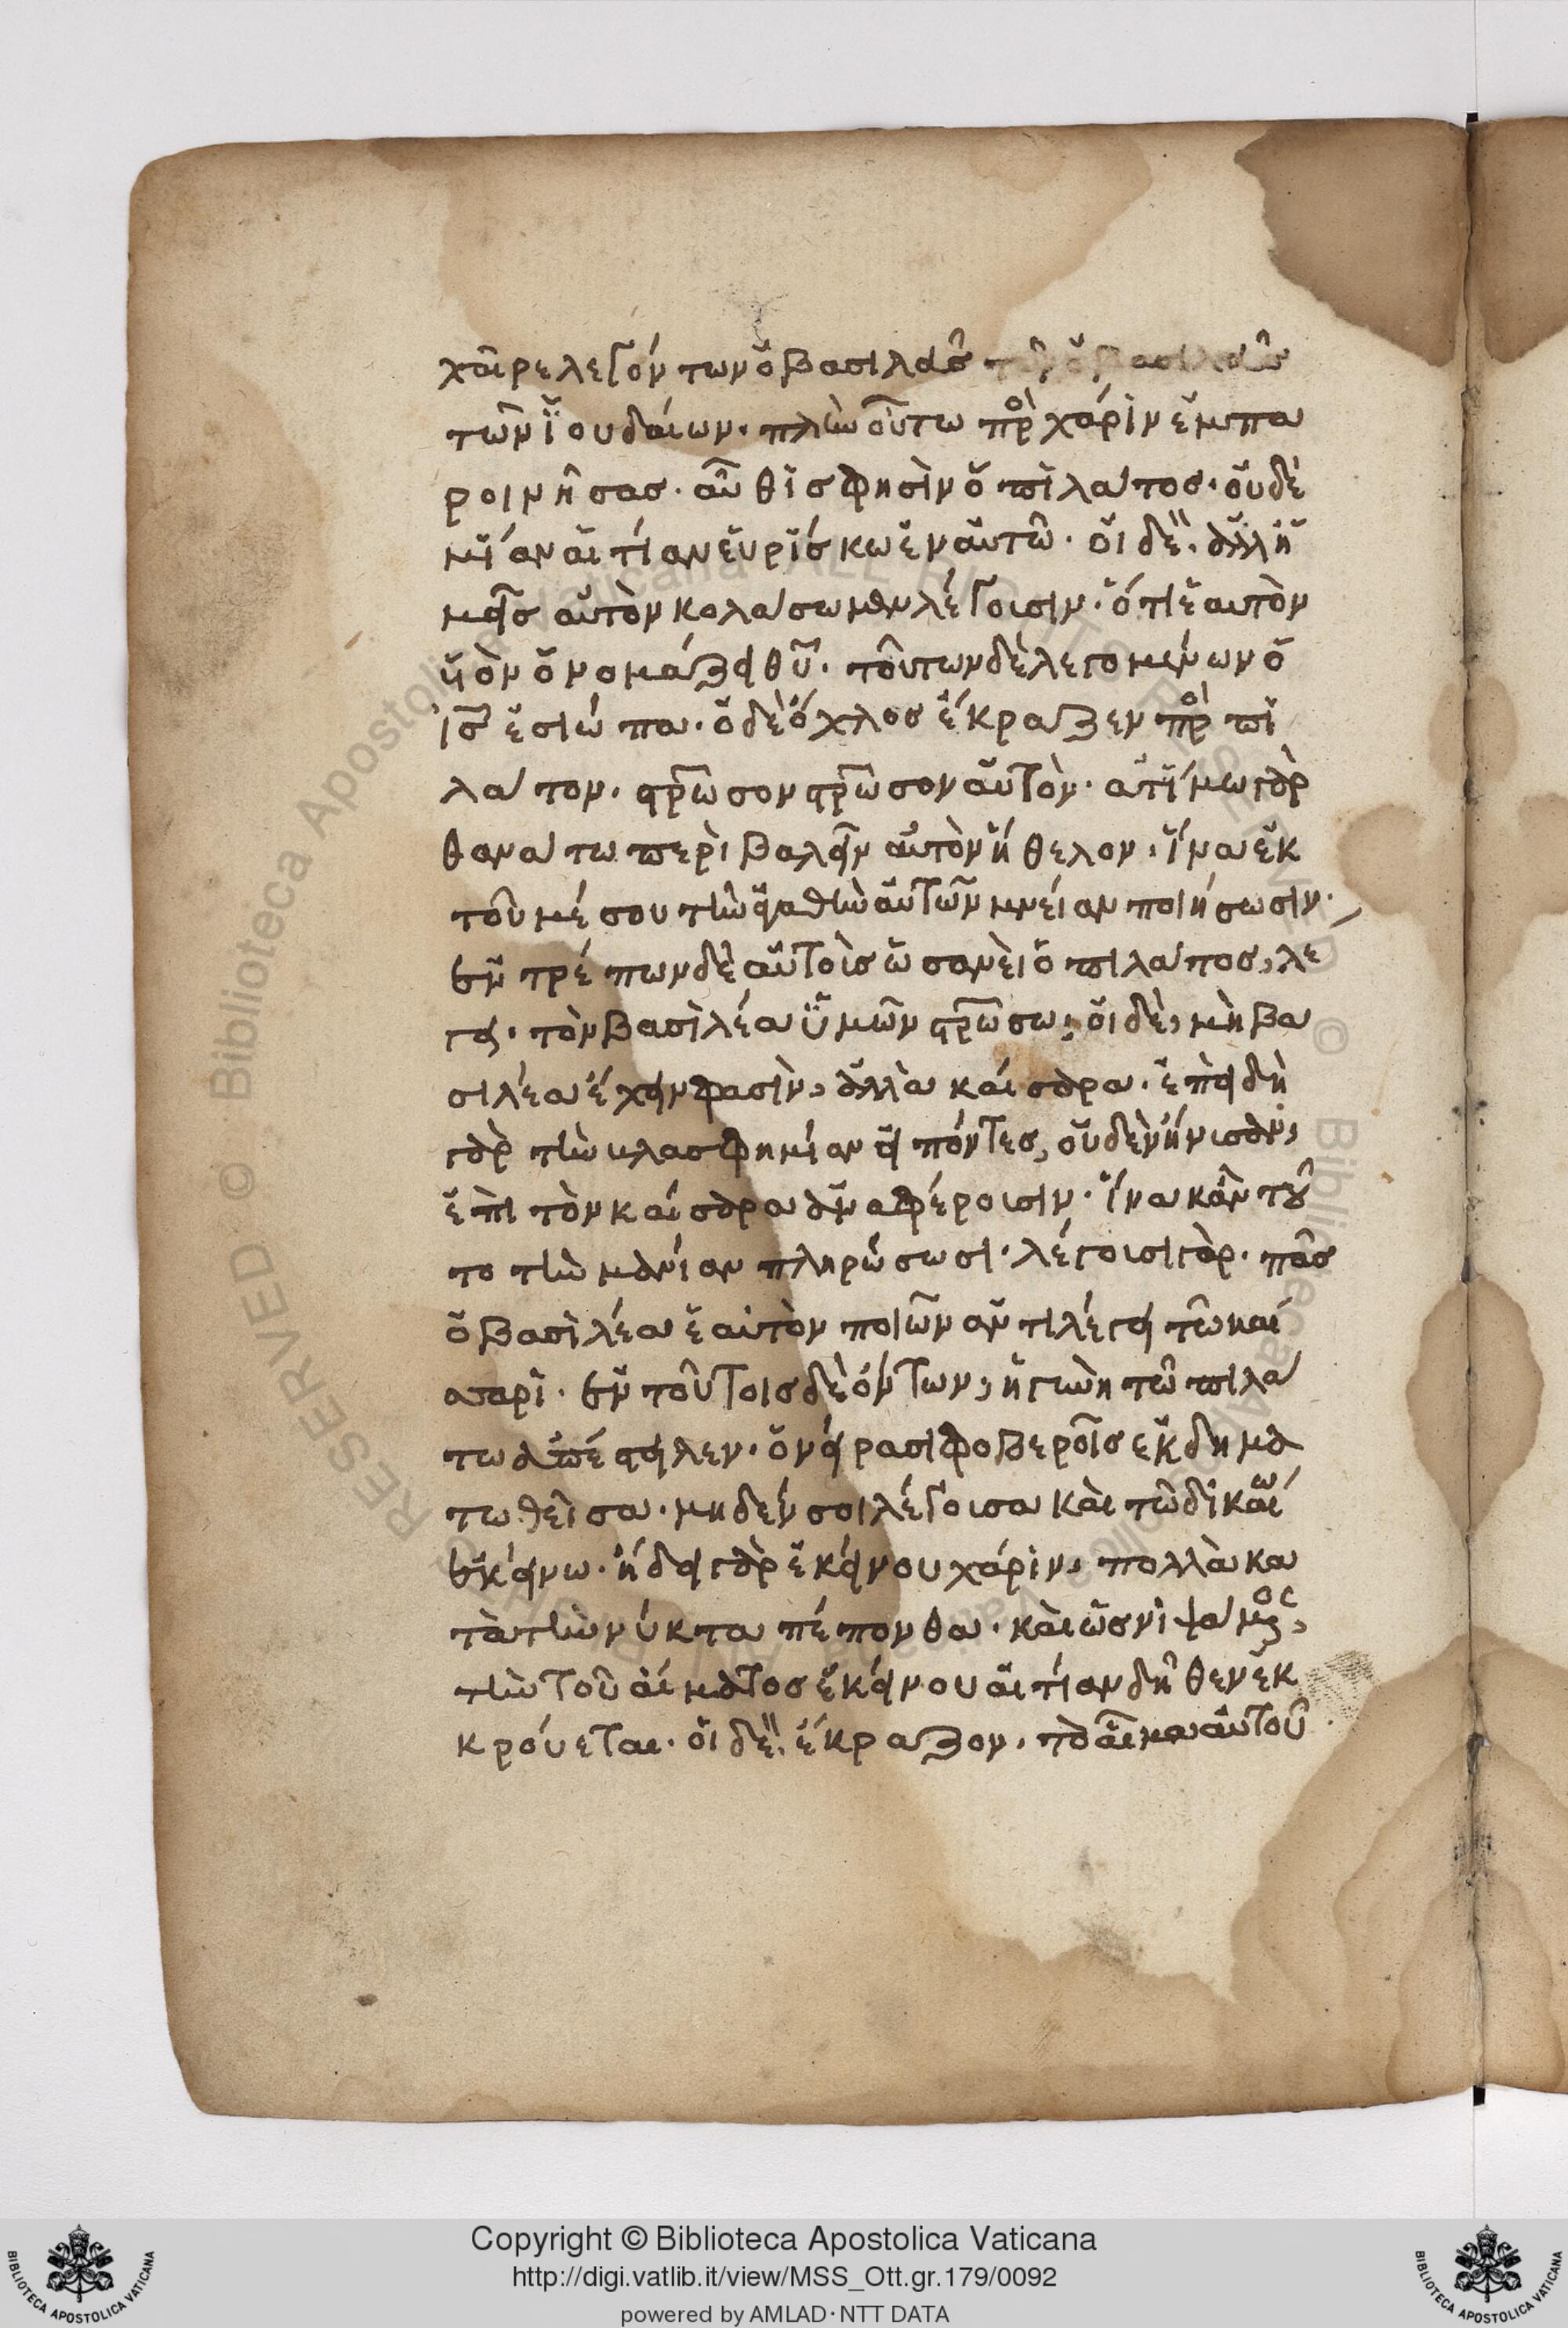 χαῖρε λεγόντων ὁ βασιλεὺς τῶν ὁ βασιλεὺς
τῶν ἰουδαίων. πλὴν οὕτω πρὸ χάριν ἐμπα
ροινήσασ. αὖθις φησὶν ὁ πιλάτος. οὐδε
μίαν αἰτίαν εὑρίσκω ἐν αὐτῶ. οἱ δὲ. ἀλλ' ἡ
μεῖς αὐτὸν κολάσωμεν λέγουσιν. ὅτι ἑαυτὸν
υἱὸν ὀνομάζει θῦ. τούτων δὲ λεγομένων ὁ
ις ἐσιώπα. ὁ δὲ ὄχλος ἔκραζεν πρὸ πι
λάτον. στρωσον στρωσον αὐτὸν. ἀτίμω γὰρ
θανάτω περιβαλεῖν αὐτὸν ἤθελον. ἵνα ἐκ
τοῦ μέσου τὴν αὐτῶν μνείαν ποιήσωσιν.
ἐντρέπων δὲ αὐτοὺς ὡσανεὶ ὁ πιλάτος, λέ
γει. τὸν βασιλέα ὑμῶν στρωσω; οἱ δὲ, μὴ βα
σιλέα ἔχειν φασὶν, ἀλλὰ καίσαρα. ἐπειδὴ
γὰρ τὴν βλασφημίαν εἰπόντες, οὐδὲν ἤνυσαν,
ἐπὶ τὸν καίσαρα ἀναφέρουσιν. ἵνα κἂν τοῦ
το τὴν μανίαν πληρώσωσι. λέγουσι γὰρ. πᾶς
ὁ βασιλέα ἑαυτὸν ποιῶν ἀντιλέγει τῶ καί
σαρι. ἐν τούτοις δὲ ὄντων, ἡ γυνὴ τῶ πιλά
τω ἀπέστειλεν. ὀνείρασι φοβεροῖς ἐκδημα
τωθεῖσα. μηδέν σοι λέγουσα καὶ τῶ δικαίω
ἐκείνω. ἤδη γὰρ ἐκείνου χάριν, πολλὰ κα
τὰ τὴν νύκτα πέπονθα. καὶ ὡς νιψάμενος,
τὴν τοῦ αἵματος ἐκείνου αἰτίαν δῆθεν ἐκ
κρούεται. οἱ δὲ. ἔκραζον. τὸ αἷμα αὐτοῦ
Copyright © Biblioteca Apostolica Vaticana
http://digi.vatlib.it/view/MSS_Ott.gr.179/0092
powered by AMLAD·NTT DATA